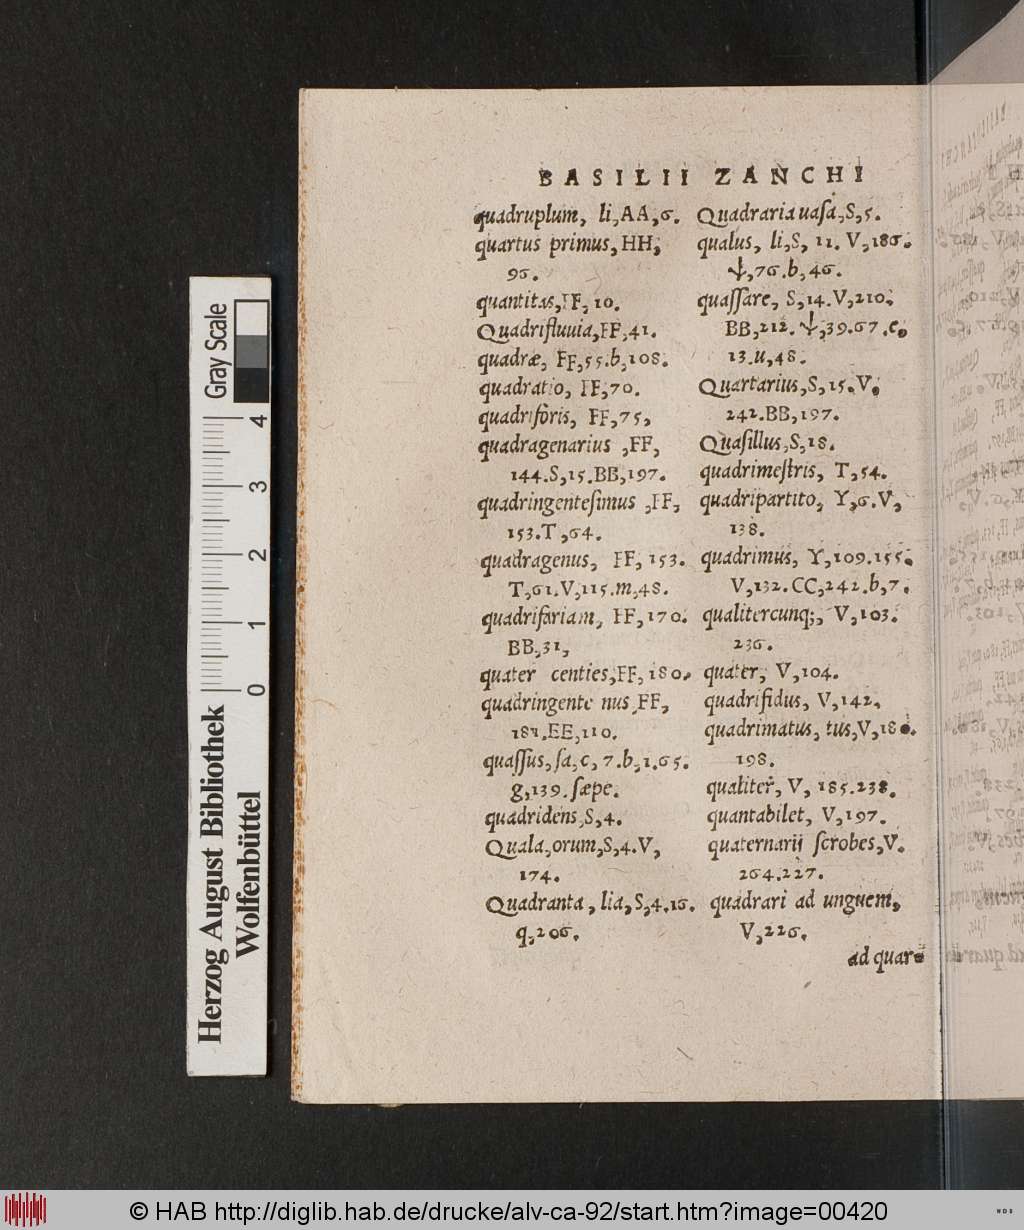 BASILII ZANCHI
quadruplum, li,AA,6.
quartus primus,HH,
96.
quantitas,FF,10.
Quadrifluuia,FF,41.
quadræ, FF,55.b,108.
quadratio, FF,70.
quadriforis, FF,75,
quadragenarius ,FF,
144.S,15.BB,197.
quadringentesimus ,FF,
153.T,64.
quadragenus, FF,153.
T,61.V,115.m,48.
quadrifariam, FF,170.
BB,31,
quater centies,FF,180.
quadringente nus,FF,
181.EE,110.
quassus,sa,c,7.b,1.65.
g,139.sæpe.
quadridens,S,4.
Quala,orum,S,4.V,
174.
Quadranta, lia,S,4.16.
q,206.
Quadraria uasa,S,5.
qualus, li,S, 11. V,186.
ѱ,76.b,46.
quassare, S,14.V,210.
BB,212.ѱ,39.67.e.
13.u,48.
Quartarius,S,15.V,
242.BB,197.
Quasillus,S,18.
quadrimestris, T,54.
quadripartito, Y,6.V,
138.
quadrimus, Y,109.155.
V,132.CC,242.b,7.
qualitercunq;, V,103.
236.
quater, V,104.
quadrifidus, V,142,
quadrimatus, tus,V,180.
198.
qualiter, V, 185.238.
quantabilet, V,197.
quaternarii scrobes,V.
264.227.
quadrari ad unguem,
V,226.
ad quar=
Gray Scale
4
3
2
1
0
Herzog August Bibliothek
Wolfenbüttel
© HAB http://diglib.hab.de/drucke/alv-ca-92/start.htm?image=00420